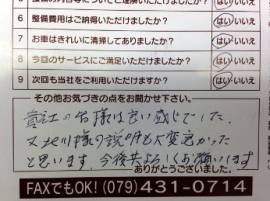 整備の内容等についてご理解いただけましたか? はい いいえ
6 整備費用はご納得いただけましたか? はい いいえ
7 お車はきれいに清掃してありましたか? はい いいえ
8 今回のサービスにご満足いただけましたか? はい いいえ
9 次回も当社をご利用いただけますか? はい いいえ
その他お気づきの点をお聞かせ下さい。
の お様は良い感じでした。
又 様の説明も大変良かった
と思います。今後共よろしくお願いします
ありがとうございました。
FAXでもOK! (079) 431-0714